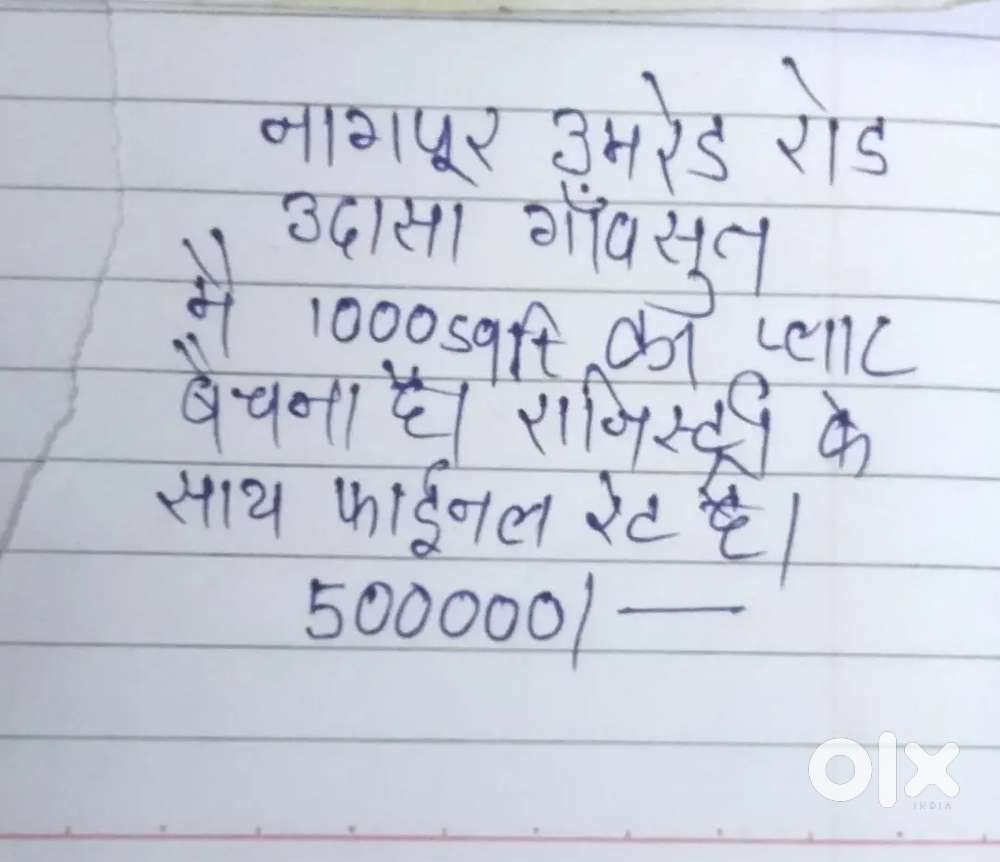 नागपूर उमरेड रोड
उदासा गाँवसुत
मै 1000sqft का प्लाट
बैचना है। राजिस्ट्री के
साथ फाईनल रेट है।
500000/—
olx
INDIA